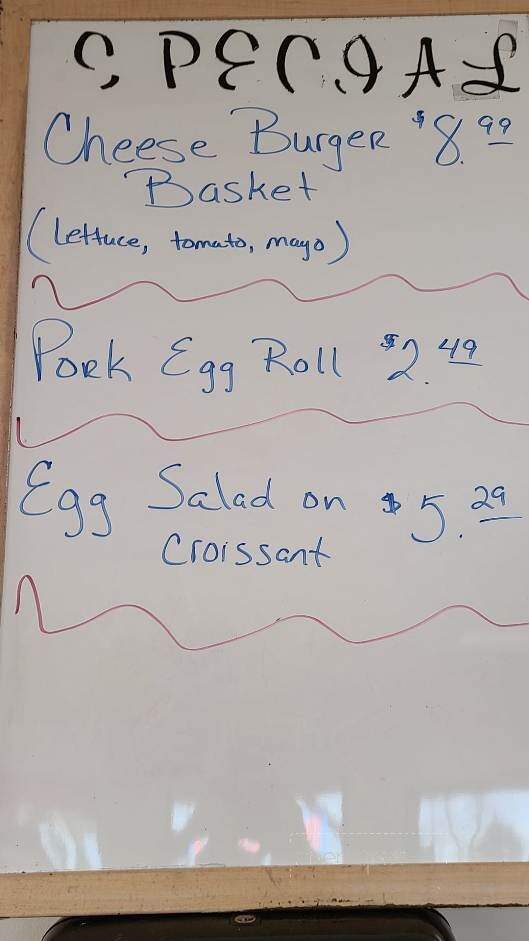 SPECIAL
Cheese Burger $8.99
Basket
(Lettuce, tomato, mayo)
Pork Egg Roll $2.49
Egg Salad on $5.29
Croissant